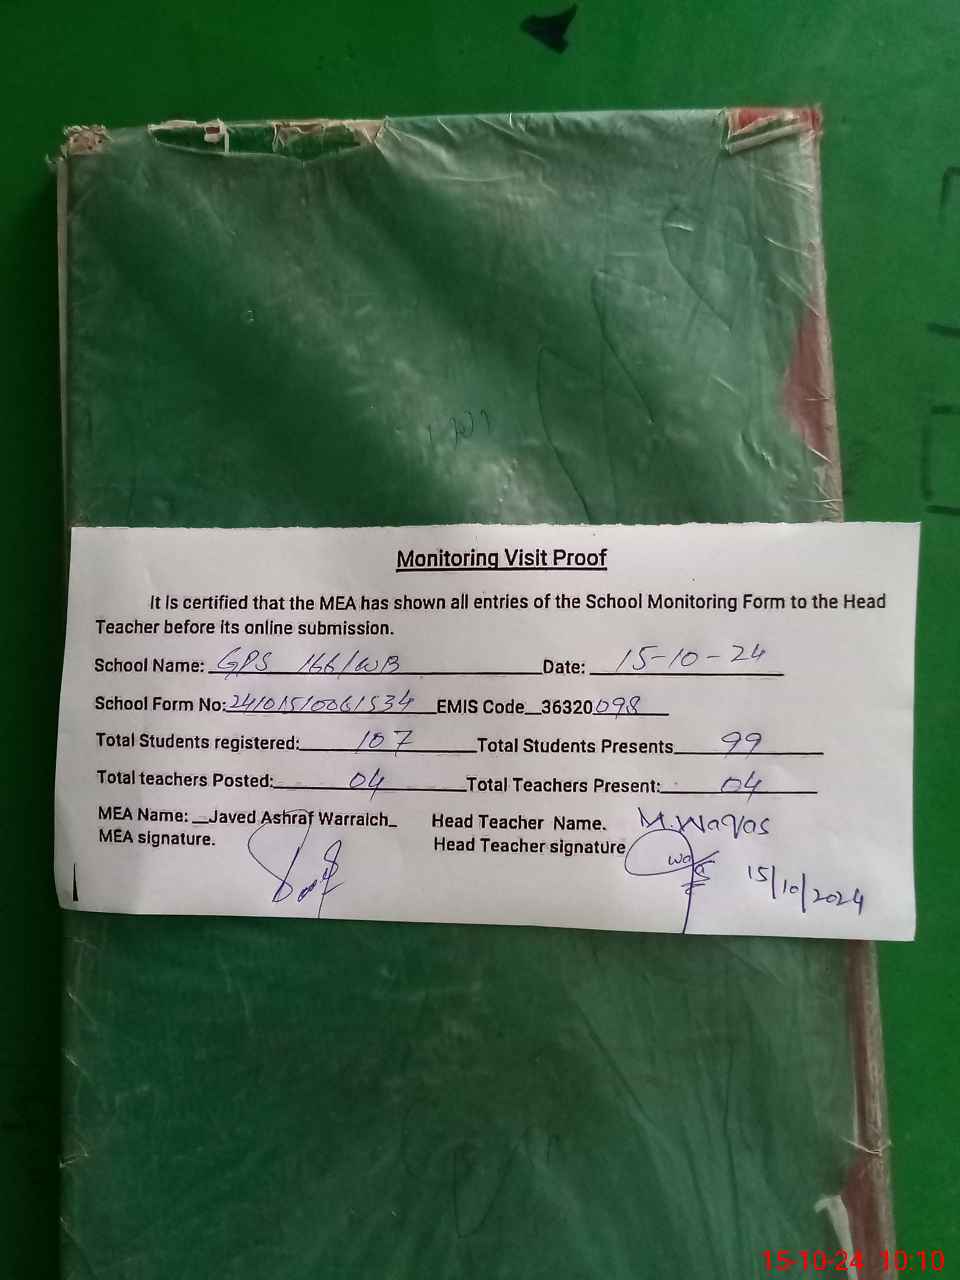 Monitoring Visit Proof
It is certified that the MEA has shown all entries of the School Monitoring Form to the Head
Teacher before its online submission.
School Name: GPS 166/WB Date: 15-10-24
School Form No: 24101510061534 EMIS Code 36320098
Total Students registered: 107 Total Students Presents 99
Total teachers Posted: 04 Total Teachers Present: 04
MEA Name: Javed Ashraf Warraich Head Teacher Name. M.Waqas
MEA signature. Head Teacher signature
15/10/2024
15-10-24 10:10